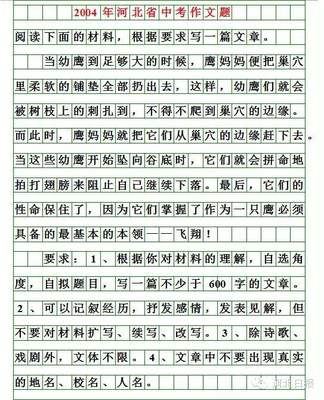 2004年河北省中考作文题
阅读下面的材料，根据要求写一篇文章。
当幼鹰到足够大的时候，鹰妈妈便把巢穴
里柔软的铺垫全部扔出去，这样，幼鹰们就会
被树枝上的刺扎到，不得不爬到巢穴的边缘。
而此时，鹰妈妈就把它们从巢穴的边缘赶下去。
当这些幼鹰开始坠向谷底时，它们就会拼命地
拍打翅膀来阻止自己继续下落。最后，它们的
性命保住了，因为它们掌握了作为一只鹰必须
具备的最基本的本领——飞翔！
要求：1、根据你对材料的理解，自选角
度，自拟题目，写一篇不少于 600 字的文章。
2、可以记叙经历，抒发感情，发表见解，但
不要对材料扩写、续写、改写。3、除诗歌、
戏剧外，文体不限。4、文章中不要出现真实
的地名、校名、人名。
河北日报